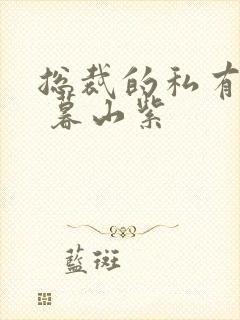 总裁的私有
暮山紫
蓝斑